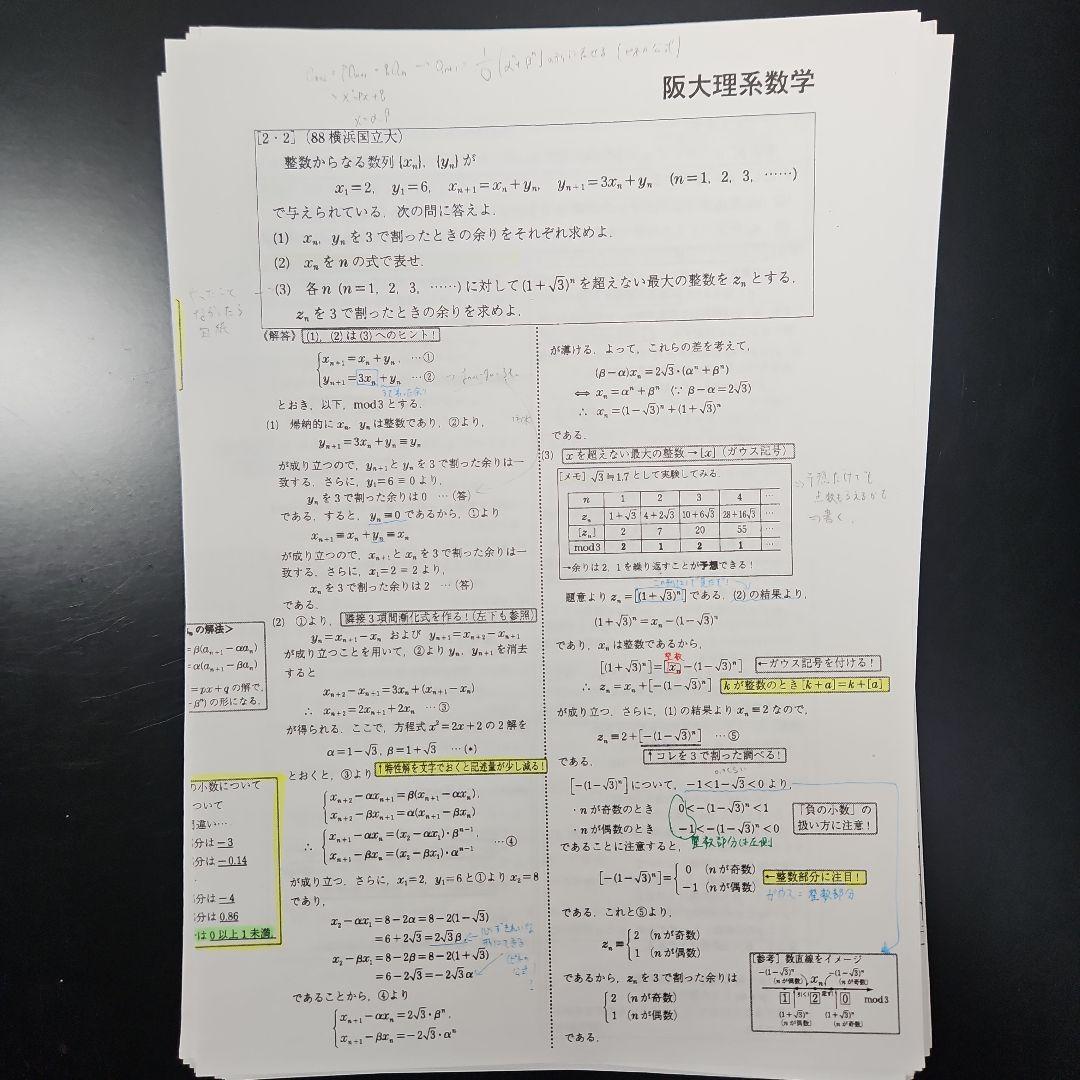 阪大理系数学
[2・2] (88 横浜国立大)
整数からなる数列 {xₙ}, {yₙ} が
x₁=2, y₁=6, xₙ₊₁=xₙ+yₙ, yₙ₊₁=3xₙ+yₙ (n=1, 2, 3, ……)
で与えられている. 次の問に答えよ.
(1) xₙ, yₙ を 3 で割ったときの余りをそれぞれ求めよ.
(2) xₙ を n の式で表せ.
(3) 各 n (n=1, 2, 3, ……) に対して (1+√3)ⁿ を超えない最大の整数を zₙ とする.
zₙ を 3 で割ったときの余りを求めよ.
《解答》 (1), (2) は (3) へのヒント!
xₙ₊₁=xₙ+yₙ …①
yₙ₊₁=3xₙ+yₙ …②
とおき, 以下, mod3 とする.
(1) 帰納的に xₙ, yₙ は整数であり, ②より,
yₙ₊₁=3xₙ+yₙ≡yₙ
が成り立つので, yₙ₊₁ と yₙ を 3 で割った余りは一
致する. さらに, y₁=6≡0 より,
yₙ を 3 で割った余りは 0 …(答)
である. すると, yₙ≡0 であるから, ①より
xₙ₊₁≡xₙ+yₙ≡xₙ
が成り立つので, xₙ₊₁ と xₙ を 3 で割った余りは一
致する. さらに, x₁=2≡2 より,
xₙ を 3 で割った余りは 2 …(答)
である.
(2) ①より, 隣接 3 項間漸化式を作る!(左下も参照)
yₙ=xₙ₊₁−xₙ および yₙ₊₁=xₙ₊₂−xₙ₊₁
が成り立つことを用いて, ②より yₙ, yₙ₊₁ を消去
すると
xₙ₊₂−xₙ₊₁=3xₙ+(xₙ₊₁−xₙ)
∴ xₙ₊₂=2xₙ₊₁+2xₙ …③
が得られる. ここで, 方程式 x²=2x+2 の 2 解を
α=1−√3, β=1+√3 …(*)
とおくと, ③より ↑特性解を文字でおくと記述量が少し減る!
xₙ₊₂−αxₙ₊₁=β(xₙ₊₁−αxₙ),
xₙ₊₂−βxₙ₊₁=α(xₙ₊₁−βxₙ)
∴ xₙ₊₁−αxₙ=(x₂−αx₁)・βⁿ⁻¹,
xₙ₊₁−βxₙ=(x₂−βx₁)・αⁿ⁻¹ …④
が成り立つ. さらに, x₁=2, y₁=6 と①より x₂=8
であり,
x₂−αx₁=8−2α=8−2(1−√3)
=6+2√3=2√3β,
x₂−βx₁=8−2β=8−2(1+√3)
=6−2√3=−2√3α
であることから, ④より
xₙ₊₁−αxₙ=2√3・βⁿ,
xₙ₊₁−βxₙ=−2√3・αⁿ
が導ける. よって, これらの差を考えて,
(β−α)xₙ=2√3・(αⁿ+βⁿ)
⇔ xₙ=αⁿ+βⁿ (∵ β−α=2√3)
∴ xₙ=(1−√3)ⁿ+(1+√3)ⁿ
である.
(3) x を超えない最大の整数 → [x] (ガウス記号)
[メモ] √3≒1.7 として実験してみる.
n 1 2 3 4 …
zₙ 1+√3 4+2√3 10+6√3 28+16√3 …
[zₙ] 2 7 20 55 …
mod3 2 1 2 1 …
→余りは 2, 1 を繰り返すことが予想できる!
題意より zₙ=[(1+√3)ⁿ] である. (2) の結果より,
(1+√3)ⁿ=xₙ−(1−√3)ⁿ
であり, xₙ は整数であるから,
整数
[(1+√3)ⁿ]=[xₙ−(1−√3)ⁿ] ←ガウス記号を付ける!
∴ zₙ=xₙ+[−(1−√3)ⁿ] k が整数のとき [k+a]=k+[a]
が成り立つ. さらに, (1) の結果より xₙ≡2 なので,
zₙ≡2+[−(1−√3)ⁿ] …⑤
である. ↑コレを 3 で割った調べる!
[−(1−√3)ⁿ] について, −1<1−√3<0 より,
・n が奇数のとき 0<−(1−√3)ⁿ<1
・n が偶数のとき −1<−(1−√3)ⁿ<0
「負の小数」の
扱い方に注意!
整数部分は左側
であることに注意すると,
[−(1−√3)ⁿ]= 0 (n が奇数)
−1 (n が偶数)
←整数部分に注目!
ガウス=整数部分
である. これと⑤より,
zₙ≡ 2 (n が奇数)
1 (n が偶数)
であるから, zₙ を 3 で割った余りは
2 (n が奇数)
1 (n が偶数)
である.
[参考] 数直線をイメージ
−(1−√3)ⁿ
(n が偶数)
xₙ
−(1−√3)ⁿ
(n が奇数)
1 2 0 mod3
(1+√3)ⁿ
(n が偶数)
(1+√3)ⁿ
(n が奇数)
の解法>
=β(aₙ₊₁−αaₙ)
=α(aₙ₊₁−βaₙ)
=px+q の解で,
−βⁿ) の形になる.
の小数について
ついて
間違い…
部分は −3
部分は −0.14
部分は −4
部分は 0.86
は 0 以上 1 未満.